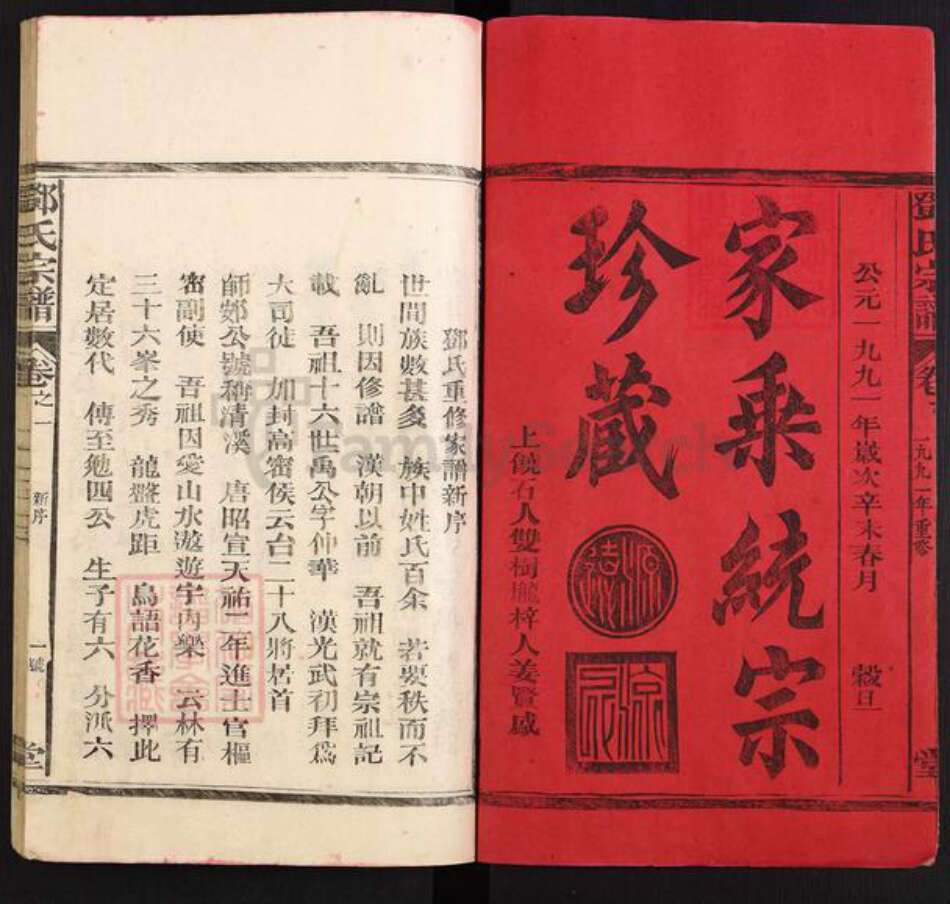 鄧氏宗譜 卷之一 一九九一年重修 堂
公元一九九一年歲次辛未春月 穀旦
家乘統宗
珍藏
上饒石人雙樹壠梓人姜賢盛
鄧氏重修家譜新序
世間族數甚多 族中姓氏百余 若要秩而不
亂 則因修譜 漢朝以前 吾祖就有宗祖記
載 吾祖十六世禹公字仲華 漢光武初拜爲
大司徒 加封高密侯云台二十八將居首
師鄭公號稱清溪 唐昭宣天祐二年進士官樞
密副使 吾祖因愛山水遨遊宇內樂 云林有
三十六峯之秀 龍盤虎距 鳥語花香 擇此
定居數代 傳至勉四公 生子有六 分派六
鄧氏宗譜 卷之一 新序 一號 堂
FamilySearch